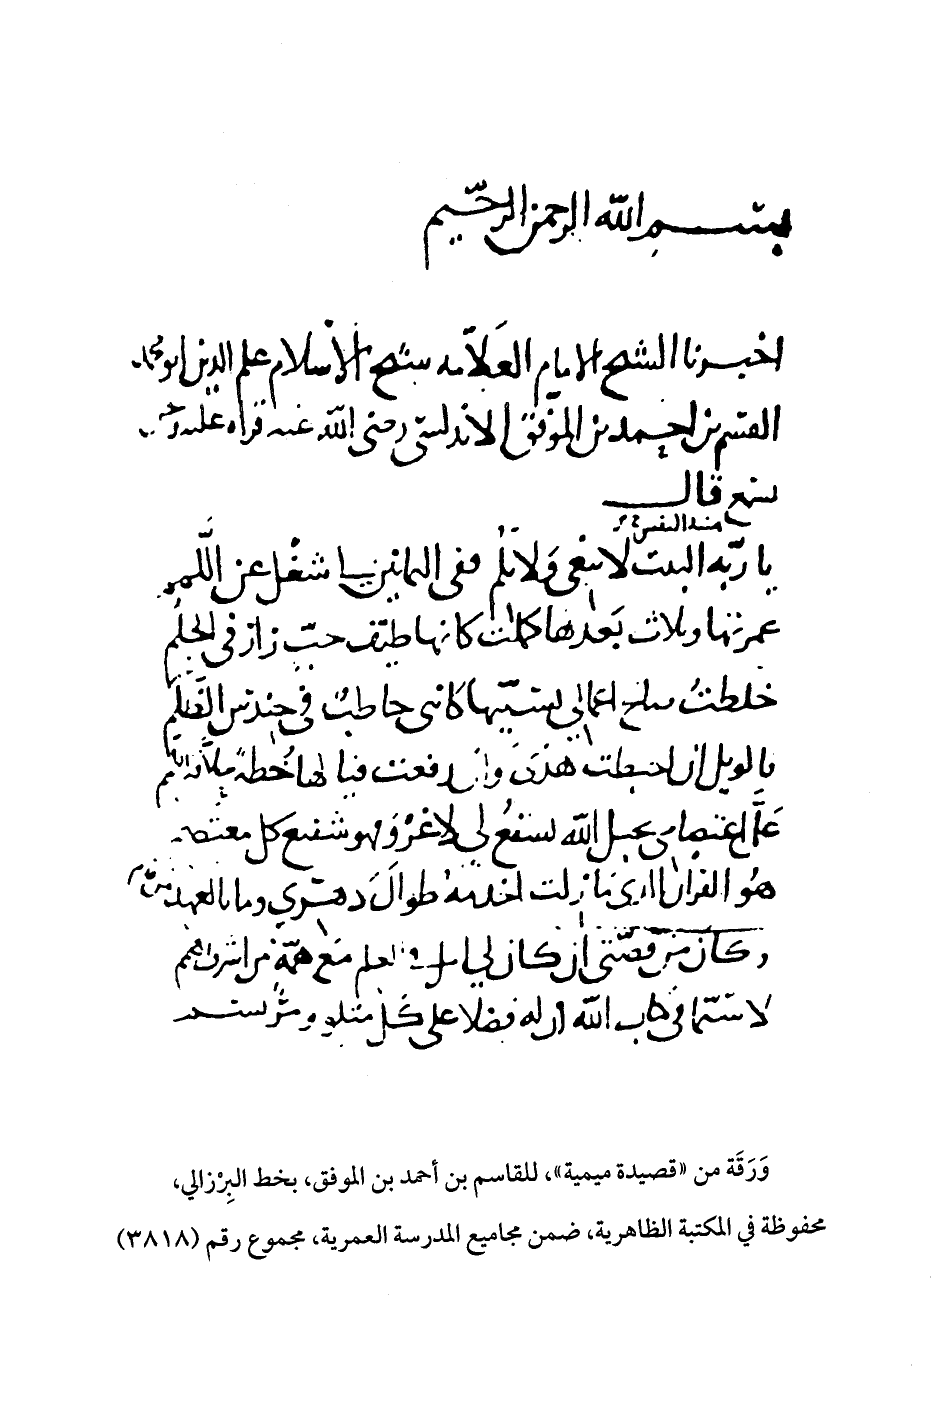 بسم الله الرحمن الرحيم
اخبرنا الشيخ الامام العلامه شيخ الاسلام علم الدين ابو محمد
القسم بن احمد بن الموفق الاندلسي رضي الله عنه قراه عليه
نسمع قال
يا ربه البيت لا تبغي ولا تلم ففي الثمانين لي شغل عن اللمم
عمرتها وثلاث بعدها كملت كانها طيف حب زار في الحلم
خلطت صالح اعمالي بسيها كانني حاطب في حندس الظلم
يا لويل ان احبطت هذى وان رفعت فيا لها خطة
على اعتصامي بحبل الله يشفع لي لا غرو فهو شفيع كل معتصم
هو القران الذي ما زلت اخدمه طوال دهري وما بالعهد من
وكان من قصتي ان كان لي العلم مع همة من اشرف الهمم
لا سيما في كتاب الله ان له فضلا على كل
وَرَقَة من «قصيدة ميمية»، للقاسم بن أحمد بن الموفق، بخط البِرْزالي،
محفوظة في المكتبة الظاهرية، ضمن مجاميع المدرسة العمرية، مجموع رقم (٣٨١٨)